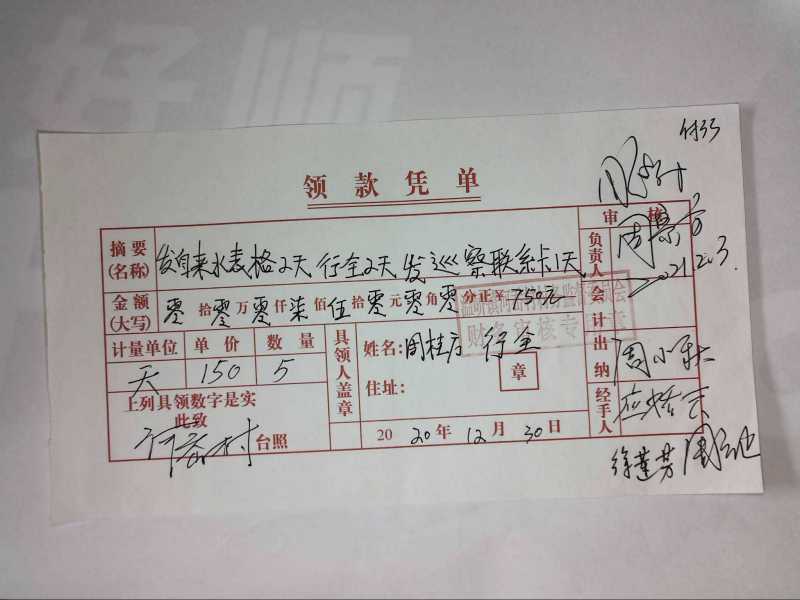 好顺
付33
领款凭单
审核
摘要(名称) 发自来水表格2天 行全2天 发巡察联系卡1天
负责人 周景方
2021.2.3
金额(大写) 零拾零万零仟柒佰伍拾零元零角零分正¥750元
会计
财务审核专用章
计量单位 单价 数量
具领人盖章
姓名:周桂方 行全
出纳 周小秋
天 150 5
住址:
章
上列具领数字是实
此致
经手人
台照
2020年12月30日
徐莲芳